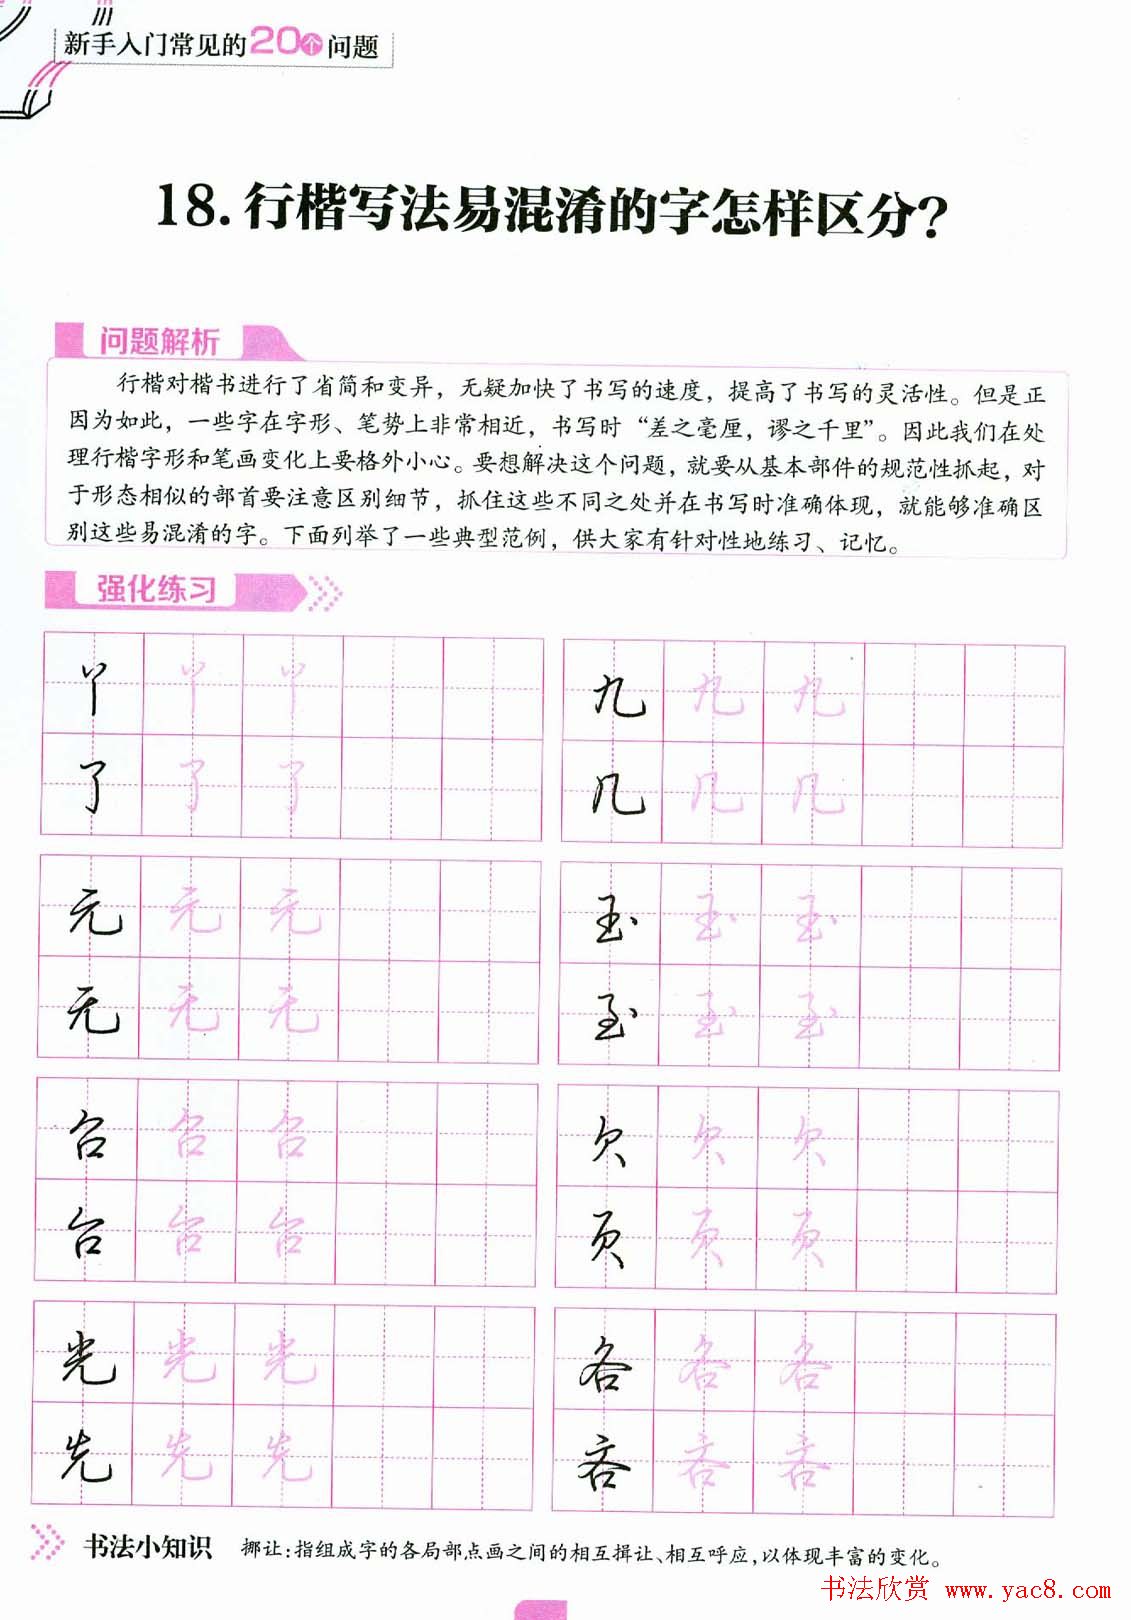 新手入门常见的20个问题
18.行楷写法易混淆的字怎样区分?
问题解析
行楷对楷书进行了省简和变异，无疑加快了书写的速度，提高了书写的灵活性。但是正
因为如此，一些字在字形、笔势上非常相近，书写时“差之毫厘，谬之千里”。因此我们在处
理行楷字形和笔画变化上要格外小心。要想解决这个问题，就要从基本部件的规范性抓起，对
于形态相似的部首要注意区别细节，抓住这些不同之处并在书写时准确体现，就能够准确区
别这些易混淆的字。下面列举了一些典型范例，供大家有针对性地练习、记忆。
强化练习
丫 丫 丫 九 九 九
了 了 了 几 几 几
元 元 元 玉 玉 玉
无 无 无 至 至 至
召 召 召 欠 欠 欠
台 台 台 页 页 页
光 光 光 各 各 各
先 先 先 吝 吝 吝
书法小知识 挪让:指组成字的各局部点画之间的相互揖让、相互呼应,以体现丰富的变化。
书法欣赏 www.yac8.com